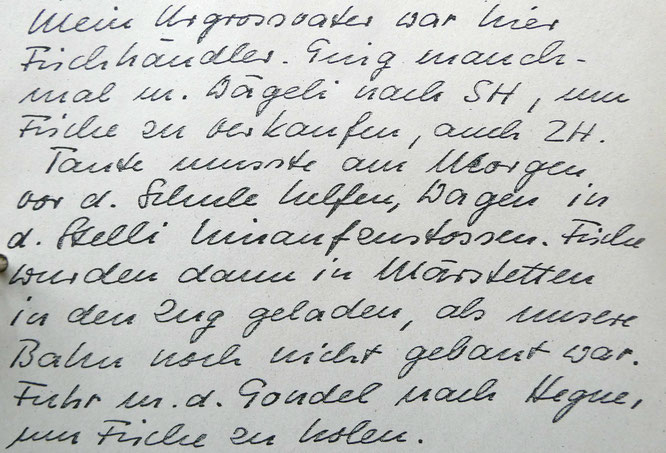 Mein Urgrossvater war hier
Fischhändler. Ging manch-
mal m. Wägeli nach SH, um
Fische zu verkaufen, auch ZH.
Tante musste am Morgen
vor d. Schule helfen, Wagen in
d. Stelli hinaufzustossen. Fische
wurden dann in Märstetten
in den Zug geladen, als unsere
Bahn noch nicht gebaut war.
Fuhr m. d. Gondel nach Hegne,
um Fische zu holen.